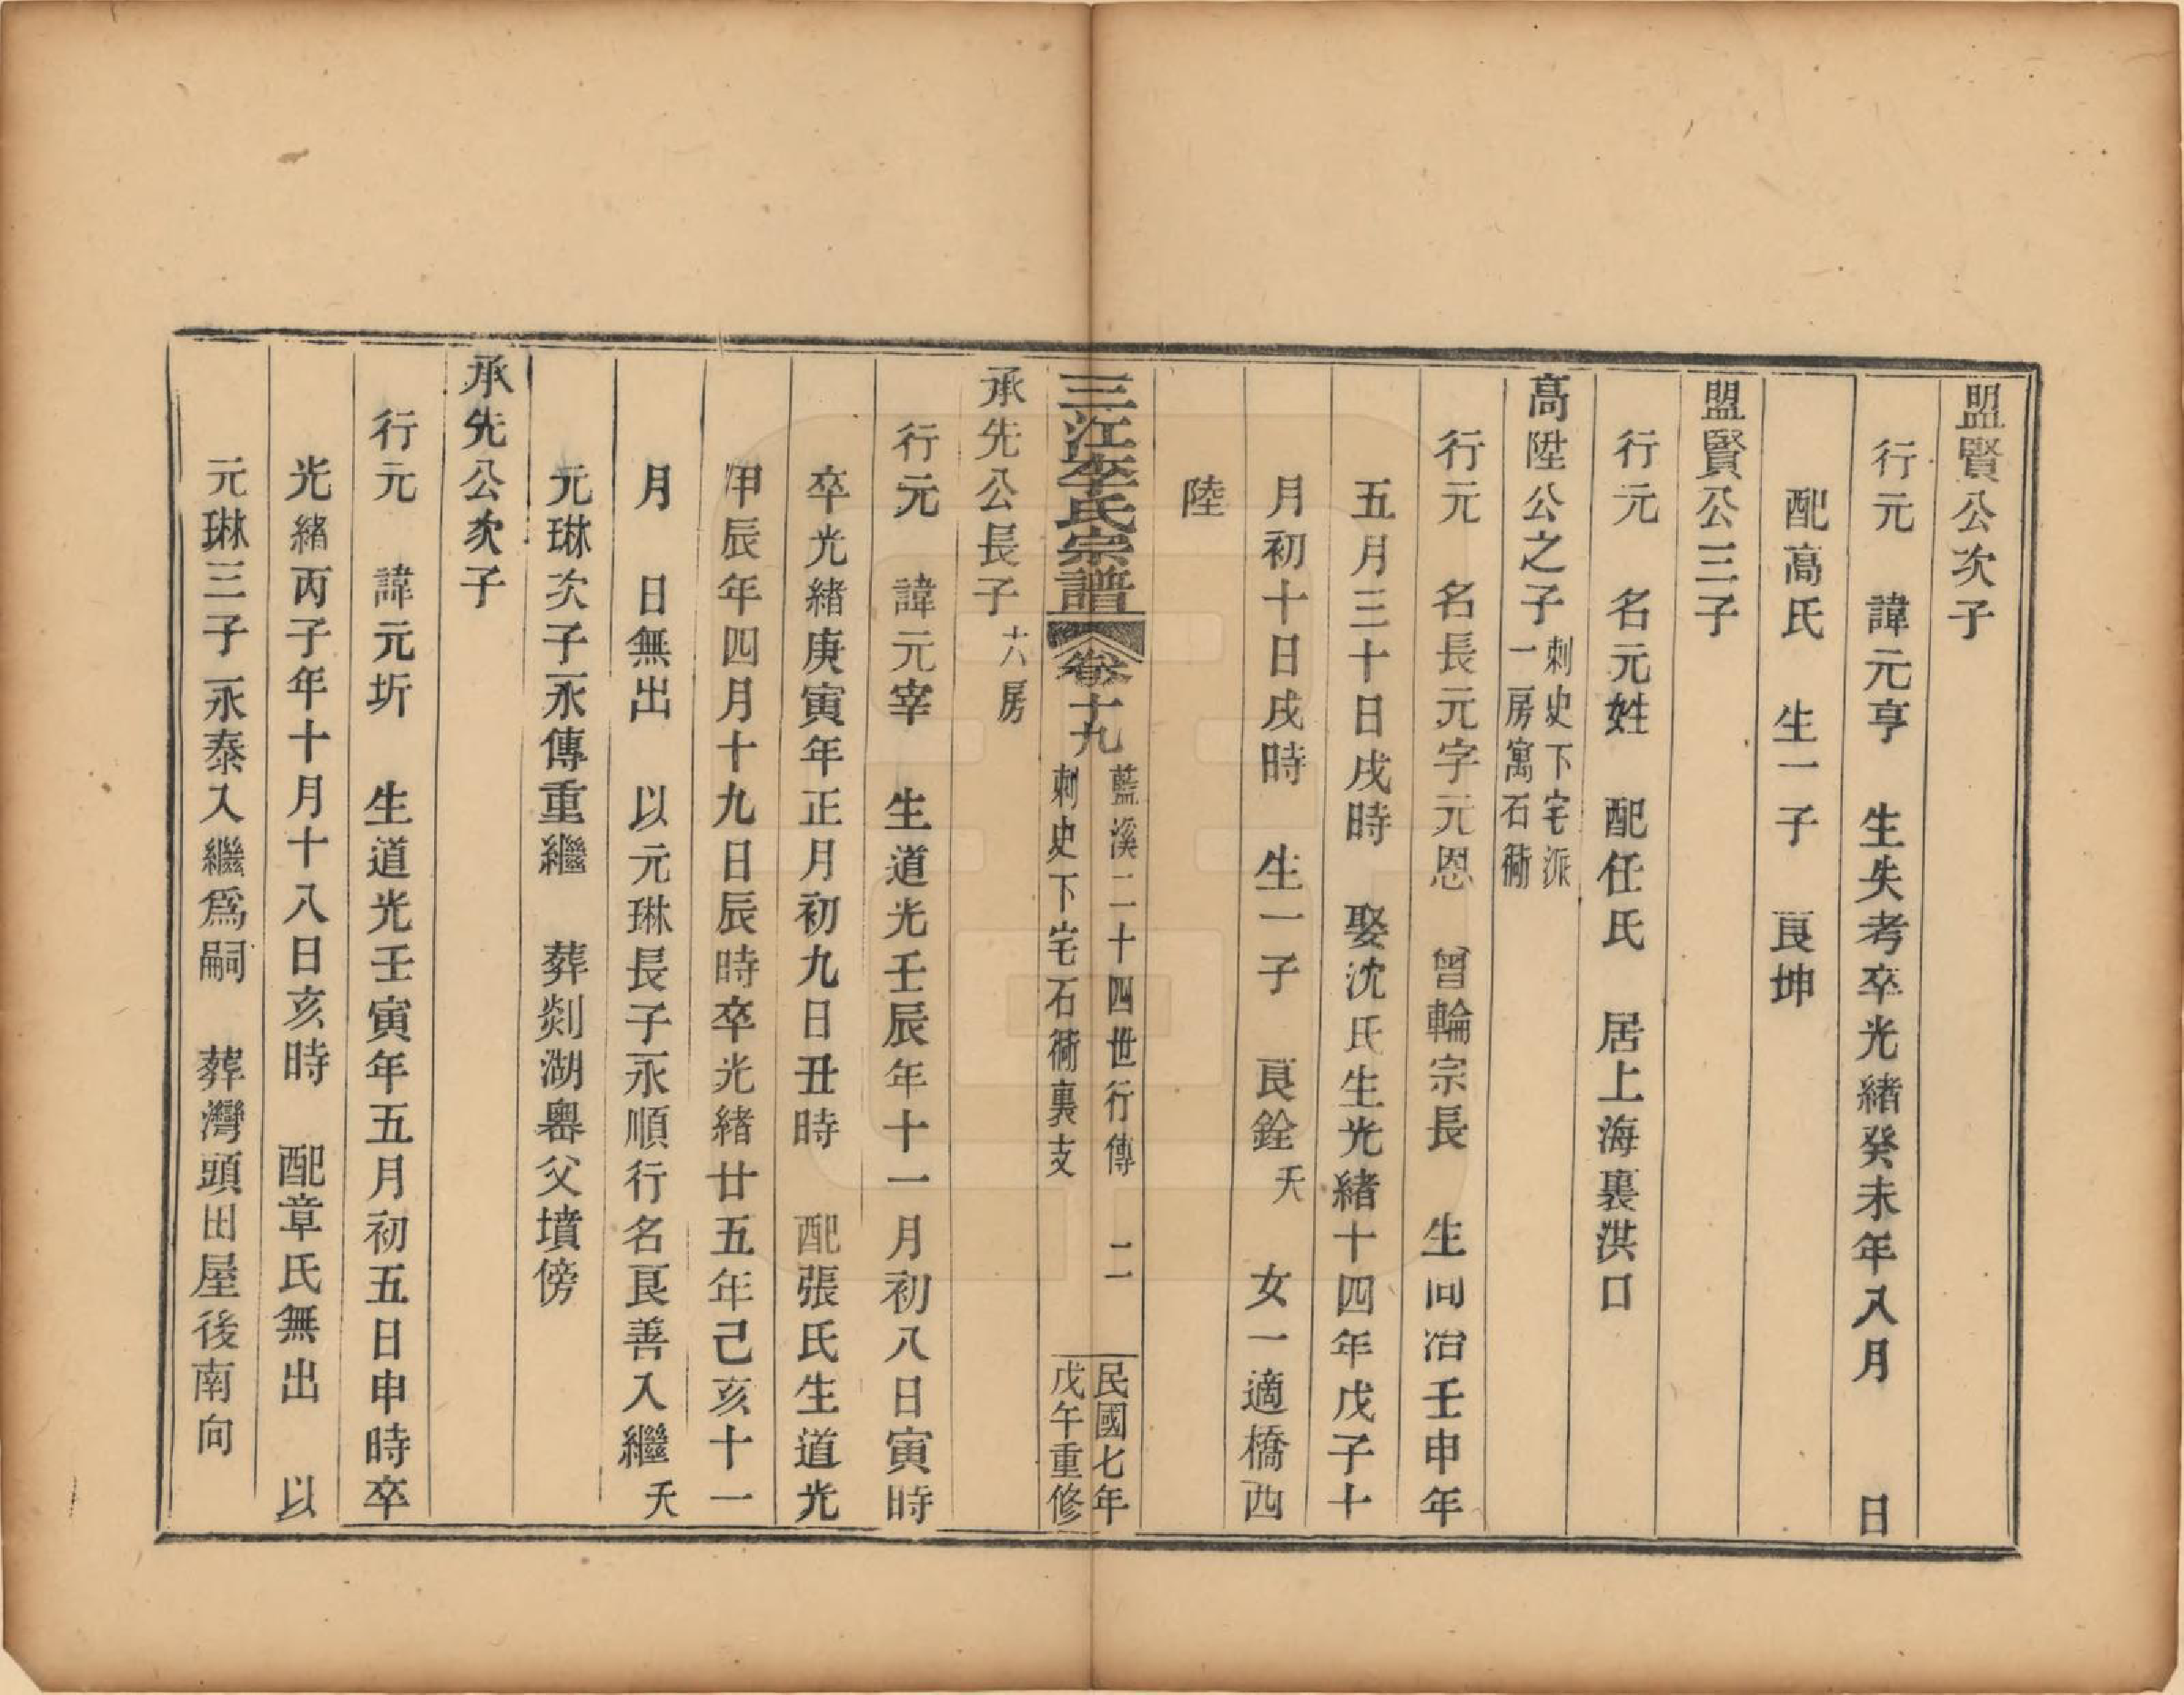 盟賢公次子
行元　諱元亨　生失考卒光緒癸未年八月　　日
配高氏　生一子　良坤
盟賢公三子
行元　名元姓　配任氏　居上海裏洪口
高陞公之子 刺史下宅派
一房寓石衕
行元　名長元字元恩　曾輪宗長　生同治壬申年
五月三十日戌時　娶沈氏生光緒十四年戊子十
月初十日戌時　生一子　良銓 夭　女一適橋西
陸
三江李氏宗譜　卷十九　藍溪二十四世行傳　二
刺史下宅石衕裏支
民國七年
戊午重修
承先公長子 六房
行元　諱元宰　生道光壬辰年十一月初八日寅時
卒光緒庚寅年正月初九日丑時　配張氏生道光
甲辰年四月十九日辰時卒光緒廿五年己亥十一
月　日無出　以元琳長子永順行名良善入繼 夭
元琳次子永傳重繼　葬剡湖嶴父墳傍
承先公次子
行元　諱元圻　生道光壬寅年五月初五日申時卒
光緒丙子年十月十八日亥時　配章氏無出　以
元琳三子永泰入繼爲嗣　葬灣頭田屋後南向